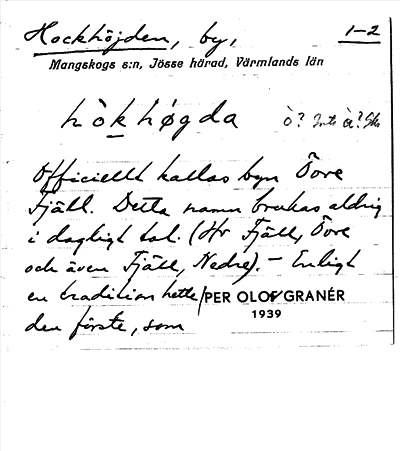 Hockhöjden, by, 1-2
Mangskogs s:n, Jösse härad, Värmlands län
hòkhøgda ò? Inte
Officiellt kallas byn Övre
Fjäll. Detta namn brukas aldrig
i dagligt tal. (Hr Fjäll, Övre
och även Fjäll, Nedre). – Enligt
en tradition hette
den förste, som
PER OLOF GRANÉR
1939